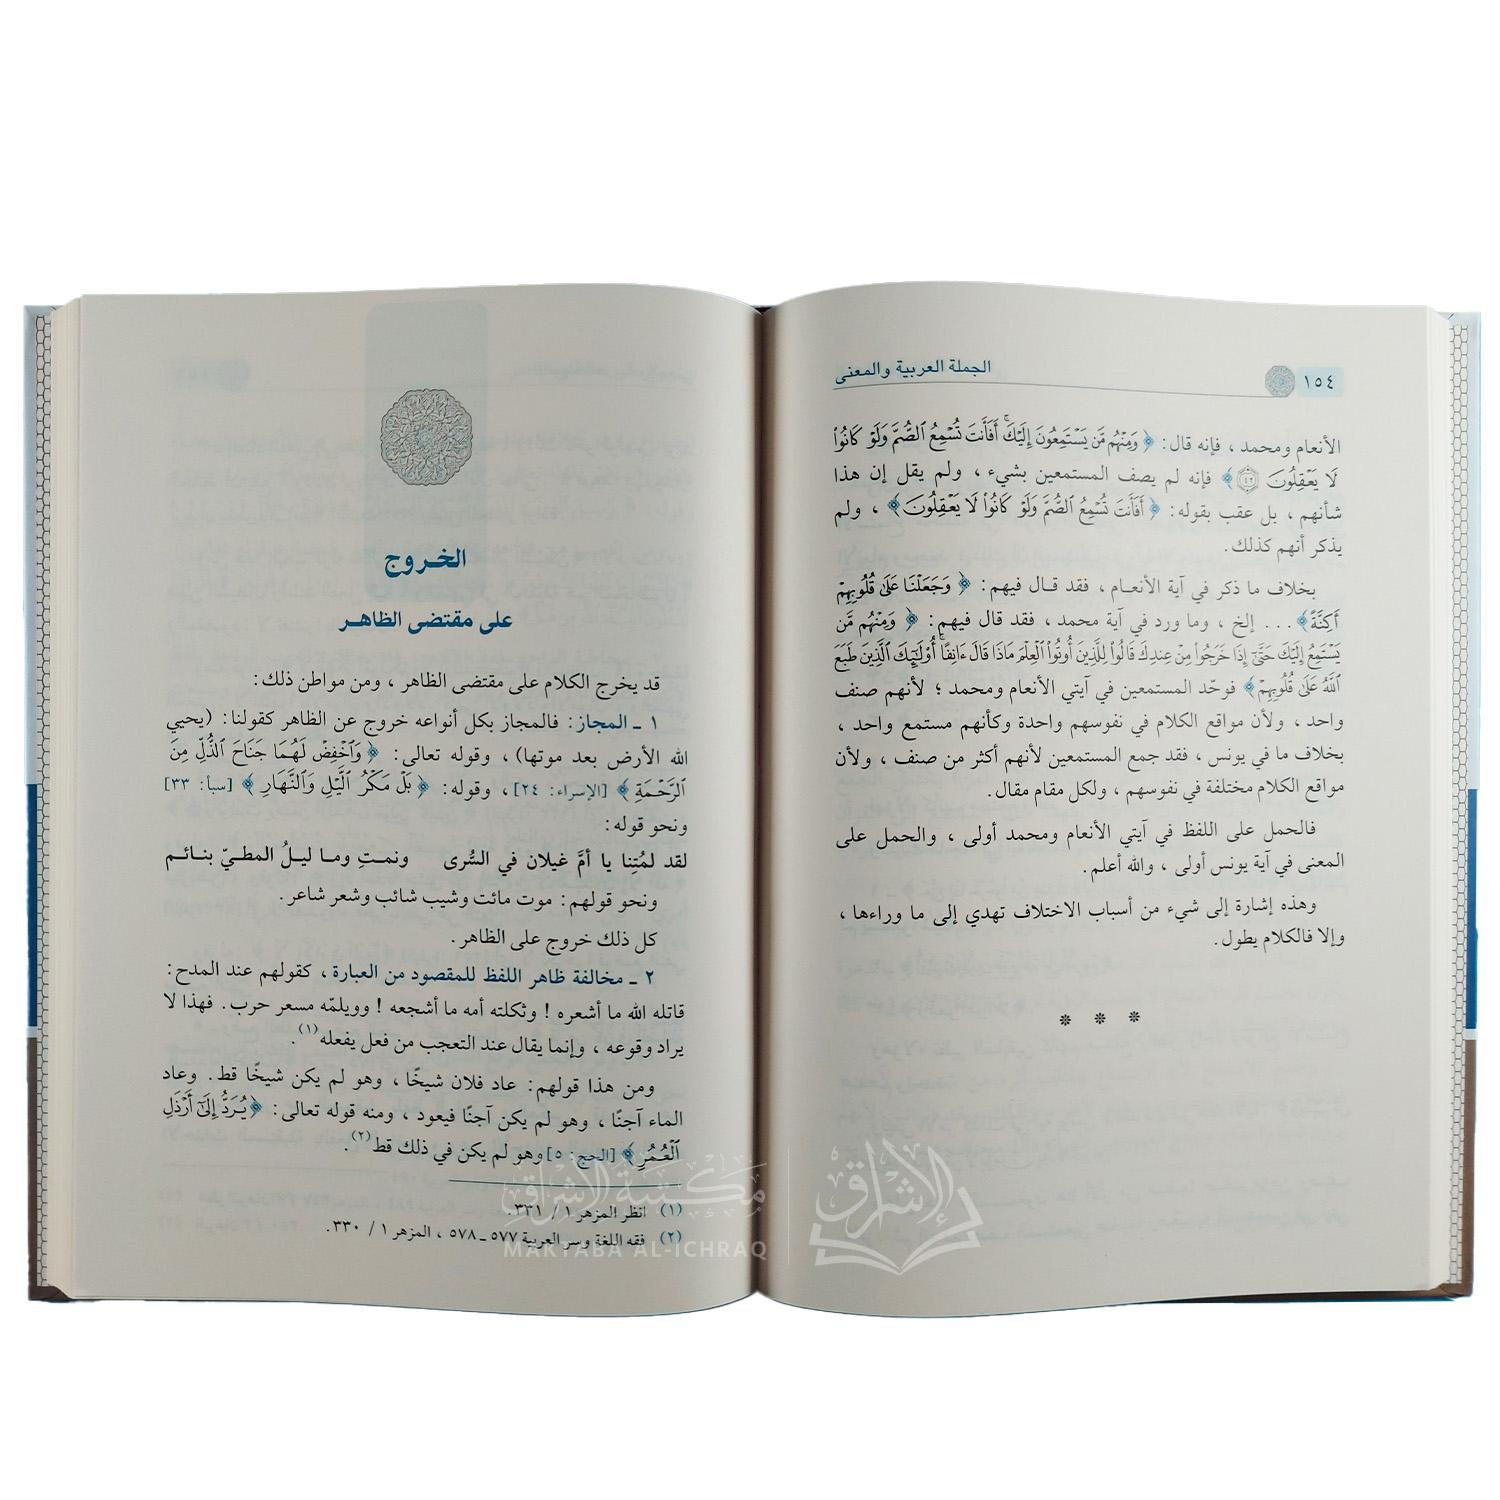 ١٥٤
الجملة العربية والمعنى
الأنعام ومحمد ، فإنه قال: ﴿ وَمِنْهُم مَّن يَسْتَمِعُونَ إِلَيْكَ أَفَأَنتَ تُسْمِعُ الصُّمَّ وَلَوْ كَانُوا
لَا يَعْقِلُونَ ٤٢﴾ فإنه لم يصف المستمعين بشيء ، ولم يقل إن هذا
شأنهم ، بل عقب بقوله: ﴿ أَفَأَنتَ تُسْمِعُ الصُّمَّ وَلَوْ كَانُوا لَا يَعْقِلُونَ ﴾ ، ولم
يذكر أنهم كذلك.
بخلاف ما ذكر في آية الأنعام، فقد قال فيهم: ﴿ وَجَعَلْنَا عَلَىٰ قُلُوبِهِمْ
أَكِنَّةً ﴾ ... إلخ ، وما ورد في آية محمد ، فقد قال فيهم: ﴿ وَمِنْهُم مَّن
يَسْتَمِعُ إِلَيْكَ حَتَّىٰ إِذَا خَرَجُوا مِنْ عِندِكَ قَالُوا لِلَّذِينَ أُوتُوا الْعِلْمَ مَاذَا قَالَ ءَانِفًا أُولَٰئِكَ الَّذِينَ طَبَعَ
اللَّهُ عَلَىٰ قُلُوبِهِمْ ﴾ فوحّد المستمعين في آيتي الأنعام ومحمد ؛ لأنهم صنف
واحد ، ولأن مواقع الكلام في نفوسهم واحدة وكأنهم مستمع واحد ،
بخلاف ما في يونس ، فقد جمع المستمعين لأنهم أكثر من صنف ، ولأن
مواقع الكلام مختلفة في نفوسهم ، ولكل مقام مقال.
فالحمل على اللفظ في آيتي الأنعام ومحمد أولى ، والحمل على
المعنى في آية يونس أولى ، والله أعلم.
وهذه إشارة إلى شيء من أسباب الاختلاف تهدي إلى ما وراءها ،
وإلا فالكلام يطول.
* * *
الخروج
على مقتضى الظاهر
قد يخرج الكلام على مقتضى الظاهر ، ومن مواطن ذلك:
١ ـ المجاز: فالمجاز بكل أنواعه خروج عن الظاهر كقولنا: (يحيي
الله الأرض بعد موتها) ، وقوله تعالى: ﴿ وَاخْفِضْ لَهُمَا جَنَاحَ الذُّلِّ مِنَ
الرَّحْمَةِ ﴾ [الإسراء: ٢٤] ، وقوله: ﴿ بَلْ مَكْرُ الَّيْلِ وَالنَّهَارِ ﴾ [سبأ: ٣٣]
ونحو قوله:
لقد لمُتِنا يا أمَّ غيلان في السُّرى ونمتِ وما ليلُ المطيّ بنائم
ونحو قولهم: موت مائت وشيب شائب وشعر شاعر.
كل ذلك خروج على الظاهر.
٢ ـ مخالفة ظاهر اللفظ للمقصود من العبارة ، كقولهم عند المدح:
قاتله الله ما أشعره ! وثكلته أمه ما أشجعه ! وويلمّه مسعر حرب. فهذا لا
يراد وقوعه ، وإنما يقال عند التعجب من فعل يفعله(١).
ومن هذا قولهم: عاد فلان شيخًا ، وهو لم يكن شيخًا قط. وعاد
الماء آجنًا ، وهو لم يكن آجنًا فيعود ، ومنه قوله تعالى: ﴿ يُرَدُّ إِلَىٰ أَرْذَلِ
الْعُمُرِ ﴾ [الحج: ٥] وهو لم يكن في ذلك قط(٢).
(١) انظر المزهر ١ / ٣٣١.
(٢) فقه اللغة وسر العربية ٥٧٧ ـ ٥٧٨ ، المزهر ١ / ٣٣٠.
مكتبة الإشراق
MAKTABA AL-ICHRAQ
الإشراق